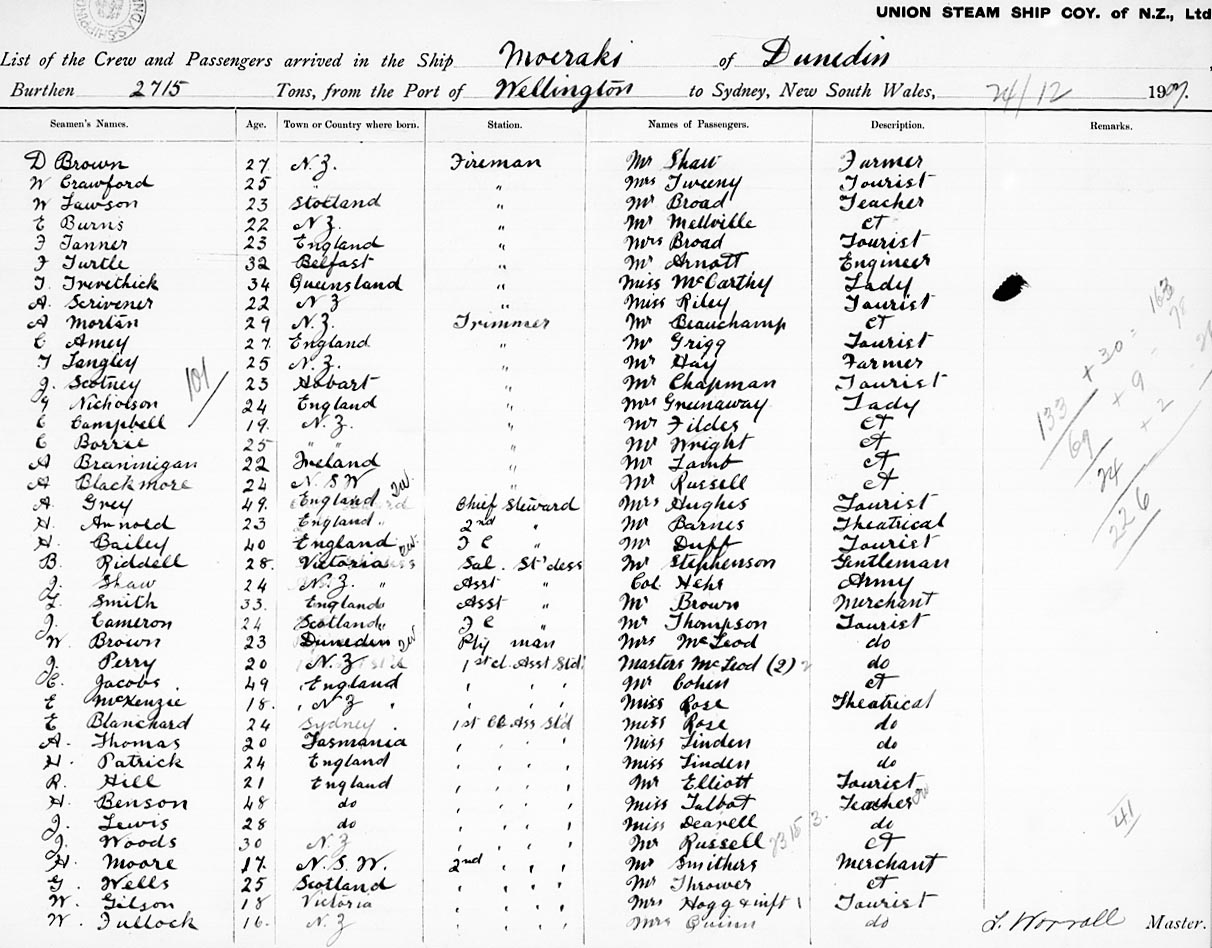 UNION STEAM SHIP COY. of N.Z., Ltd
List of the Crew and Passengers arrived in the Ship Moeraki of Dunedin
Burthen 2715 Tons, from the Port of Wellington to Sydney, New South Wales, 24/12 1907.
Seamen's Names. Age. Town or Country where born. Station. Names of Passengers. Description. Remarks.
D Brown 27 N.Z. Fireman Mr Shaw Farmer
W Crawford 25 " " Mrs Tweeny Tourist
W Lawson 23 Scotland " Mr Broad Teacher
E Burns 22 N.Z. " Mr Mellville ct
F Tanner 23 England " Mrs Broad Tourist
F Turtle 32 Belfast " Mr Arnott Engineer
T. Trevethick 34 Queensland " Miss McCarthy Lady
A. Scrivener 22 N Z " Miss Riley Tourist
A Mortan 29 N.Z. Trimmer Mr Beauchamp ct
C Amey 27 England " Mr Grigg Tourist
T Langley 25 N.Z. " Mr Hay Farmer
J. Scotney 23 Hobart " Mr Chapman Tourist
G Nicholson 24 England " Mrs Greenaway Lady
C Campbell 19. N.Z. " Mr Fildes ct
C Borrie 25 " " " Mr Wright ct
A Brannigan 22 Ireland " Mr Lamb ct
A Blackmore 24 N.S.W " Mr Russell ct
A Grey 49. England Chief Steward Mrs Hughes Tourist
H. Arnold 23 England 2nd " Mr Barnes Theatrical
H. Bailey 40 England F C " Mr Duff Tourist
B. Riddell 28. Victoria Sal. St'dess Mr Stephenson Gentleman
J. Shaw 24 N.Z. " Asst " Col. Hehs Army
L. Smith 33. England Asst " Mr Brown Merchant
J. Cameron 24 Scotland F C " Mr Thompson Tourist
W. Brown 23 Dunedin Pty man Mrs McLeod do
J. Perry 20 N.Z 1st cl. Asst Std. Masters McLeod (2) do
C. Jacobs 49 England " " " " Mr Cohen ct
E McKenzie 18. N Z " " " " Miss Rose Theatrical
E Blanchard 24 Sydney 1st Cl Ass Std Miss Rose do
A. Thomas 20 Tasmania " " " " Miss Linden do
H. Patrick 24 England " " " " Miss Linden do
R. Hill 21 England " " " " Mr Elliott Tourist
H. Benson 48 do " " " " Miss Talbot Teacher
J. Lewis 28 do " " " " Miss Dearell do
J. Woods 30 N.Z " " " " Mr Russell ct
H. Moore 17. N.S.W. 2nd " " " Mr Smithers Merchant
G. Wells 25 Scotland " " " " Mr Thrower ct
W. Gilson 18 Victoria " " " " Mrs Hogg & inft 1 Tourist
W. Tullock 16. N.Z " " " " Mrs Quinn do
101
133 + 30 = 163
69 + 9 - 78
24 + 2
226
41
L. Worrall Master.